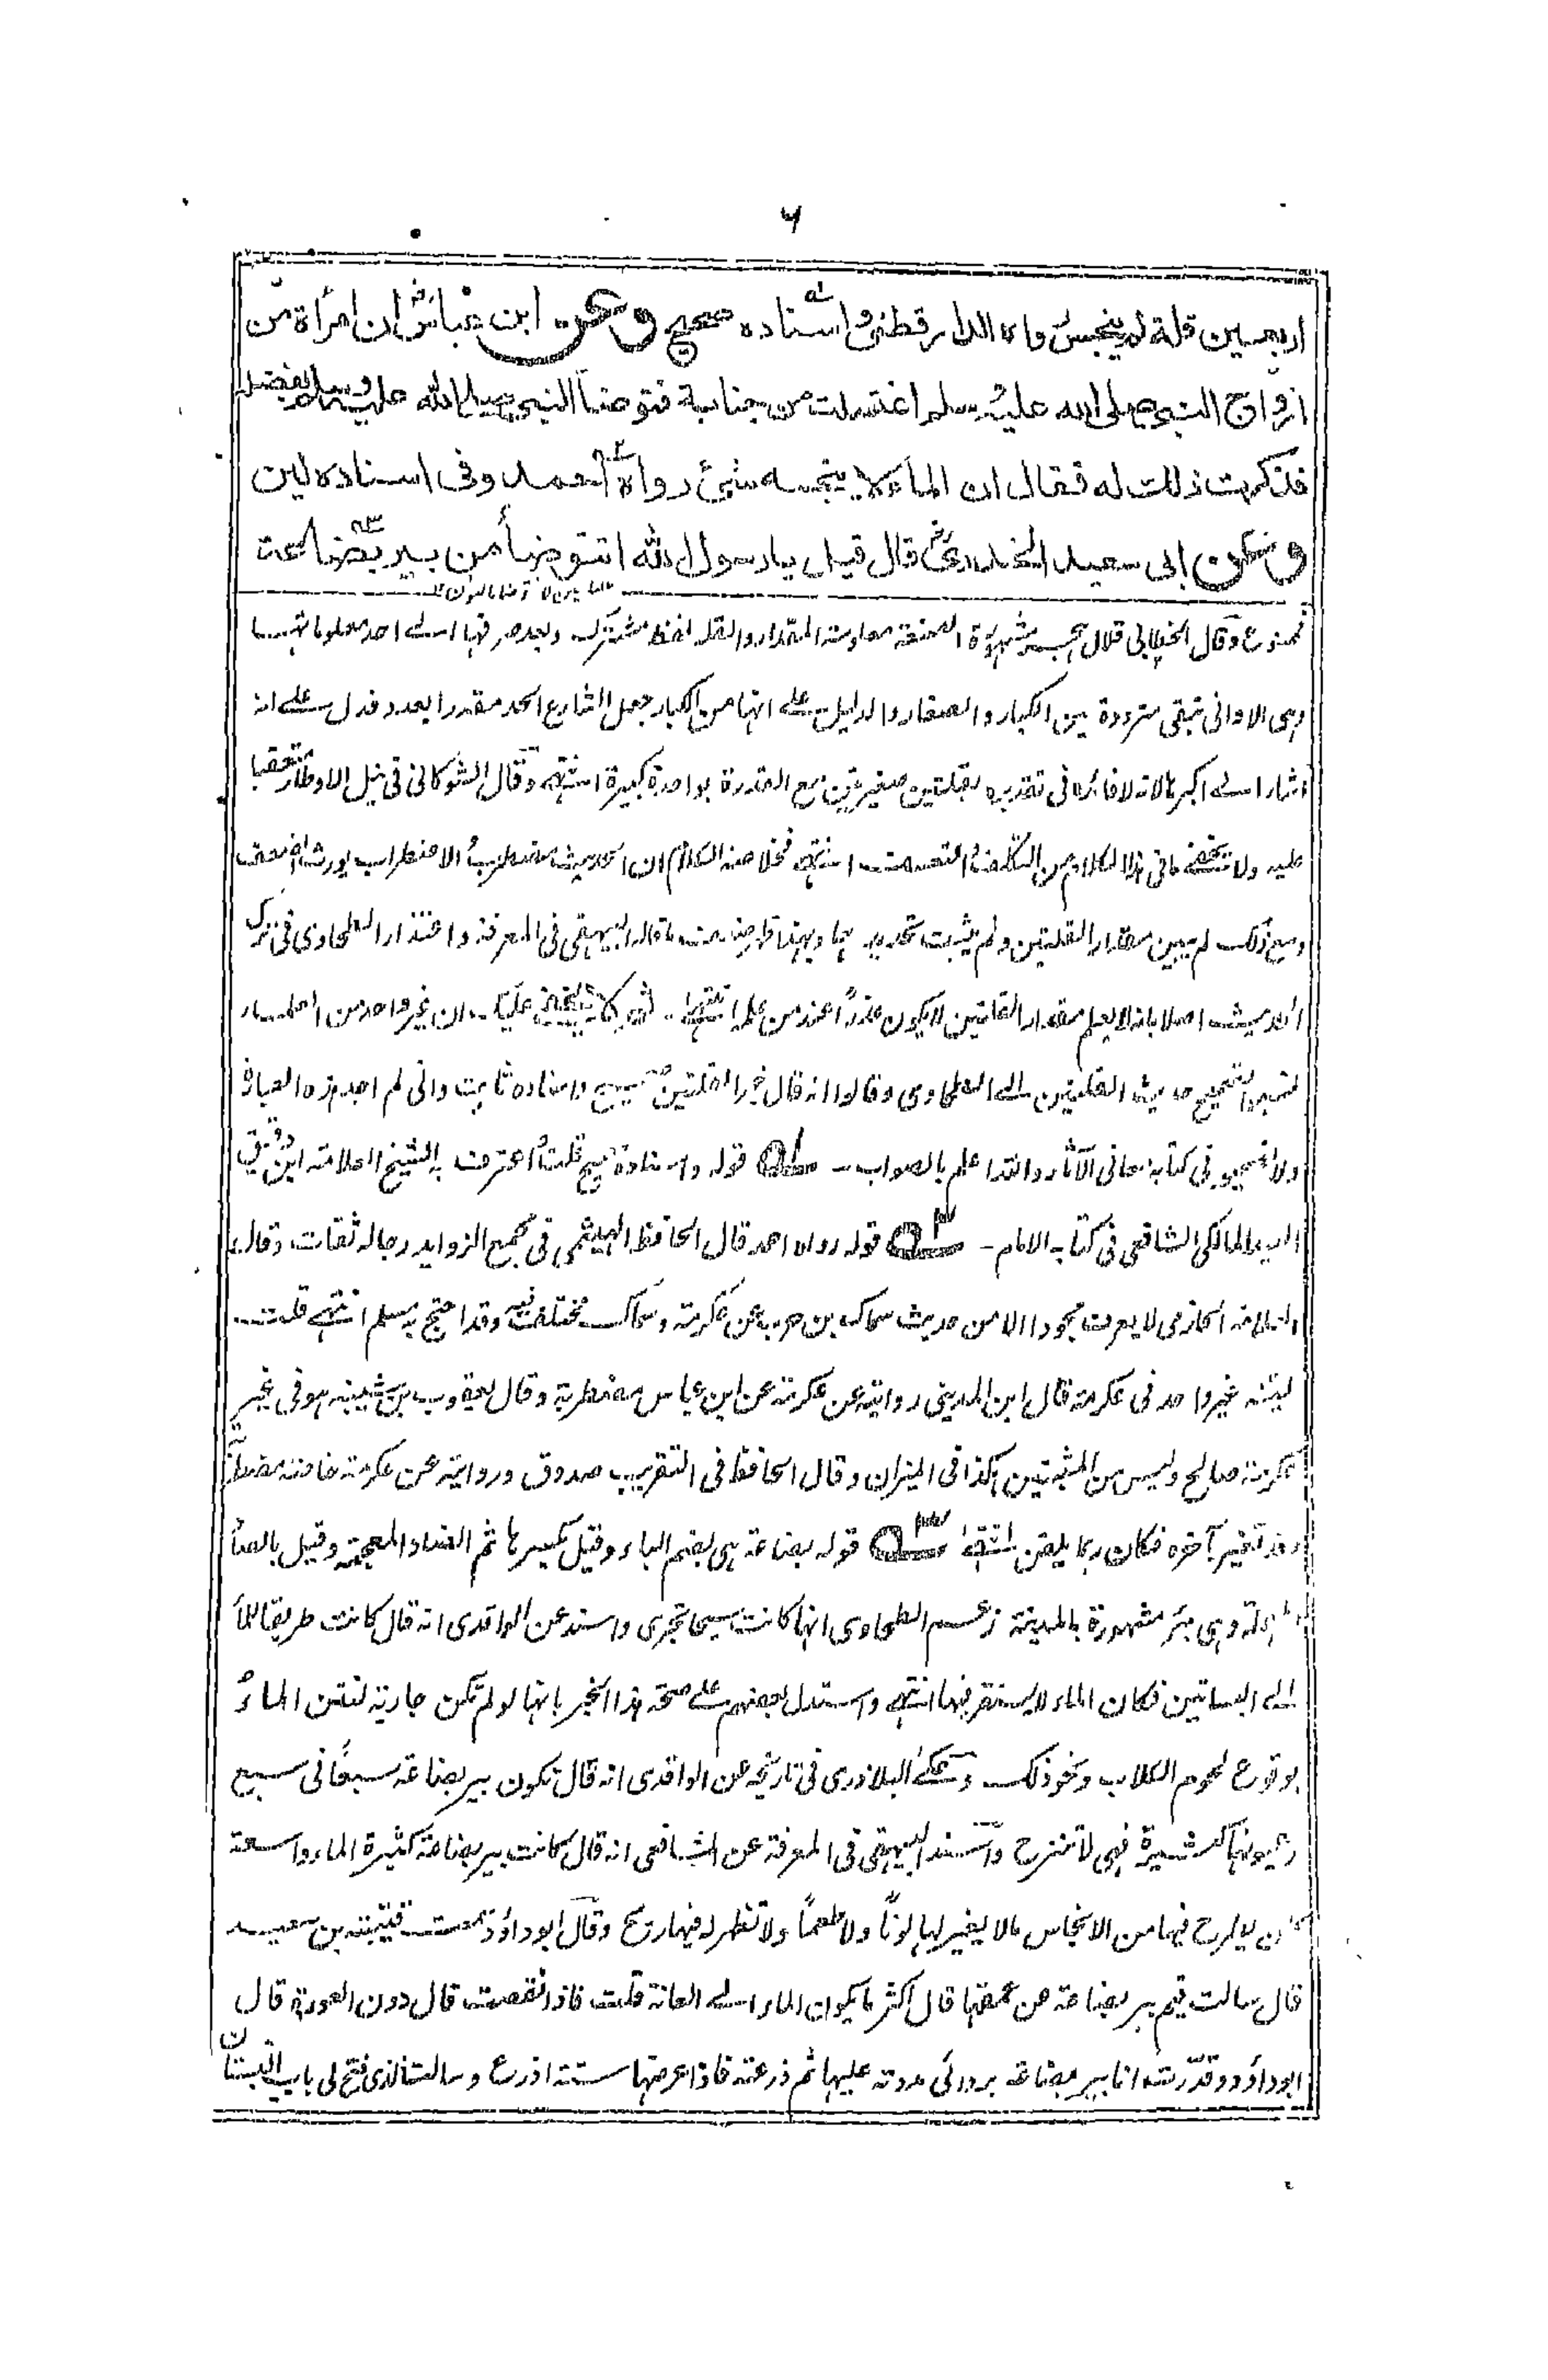 ۶
اربعين قلة لم ينجس رواه الدارقطني واسناده صحيح وعن ابن عباس ان امرأة من
ازواج النبي صلى الله عليه وسلم اغتسلت من جنابة فتوضأ النبي صلى الله عليه وسلم بفضله
فذكرت ذلك له فقال ان الماء لا ينجسه شئ رواه احمد وفي اسناده لين
وعن ابى سعيد الخدري قال قيل يا رسول الله انتوضأ من بير بضاعة
ممنوع وقال الخطابي قلال هجر مشهورة الصنعة معلومة المقدار والقلة لفظ مشترك وبعد صرفها الى احد معلوماتها
وهى الاوانى تبقى مترددة بين الكبار والصغار والدليل على انها من الكبار جعل الشارع الحد مقدرا بعدد فدل على انه
اشار الى اكبرها لانه لا فائدة فى تقديره بقلتين صغيرتين مع القدرة بواحدة كبيرة انتهى وقال الشوكانى فى نيل الاوطار متعقبا
عليه ولا يخفى ما فى هذا الكلام من التكلف والتعسف انتهى فخلاصة الكلام ان الحديث مضطرب والاضطراب يورث الضعف
ومع ذلك لم يبين مقدار القلتين ولم يثبت تحديدهما وبهذا ظهر ضعف ما قال البيهقى فى المعرفة واعتذار الطحاوى فى ترك
الحديث اصلا بانه لا يعلم مقدار القلتين لا يكون عذرًا عند من علمه انتهى ثم لا يخفى عليك ان غير واحد من اهل
نسبوا تصحيح حديث القلتين الى الطحاوى وقالوا انه قال خبر القلتين صحيح واسناده ثابت وانى لم اجد هذه العبارة
ولا نحوه فى كتابه معانى الآثار والله اعلم بالصواب - ۱ قوله واسناده صحيح قلت اعترف به الشيخ العلامة ابن دقيق
العيد المالكى الشافعى فى كتابه الامام - ۲ قوله رواه احمد قال الحافظ الهيثمى فى مجمع الزوايد رجاله ثقات وقال
العلامة الحازمى لا يعرف مجودا الا من حديث سماك بن حرب عن عكرمة وسماك مختلف فيه وقد احتج به مسلم انتهى قلت
لينه غير واحد فى عكرمة قال ابن المدينى روايته عن عكرمة عن ابن عباس مضطربة وقال يعقوب بن شيبة هو فى غير
عكرمة صالح وليس من المثبتين كذا فى الميزان وقال الحافظ فى التقريب صدوق وروايته عن عكرمة خاصة مضطربة
وقد تغير بآخره فكان ربما يلقن انتهى ۳ قوله بضاعة هى بضم الباء وقيل بكسرها ثم الضاد المعجمة وقيل بالصاد
المهملة وهى بئر مشهورة بالمدينة زعم الطحاوى انها كانت سيحا تجرى واسند عن الواقدى انه قال كانت طريقا للماء
الى البساتين فكان الماء لا يستقر فيها انتهى واستدل بعضهم على صحة هذا الخبر بانها لو لم تكن جارية لنتن الماء
بوقوع لحوم الكلاب ونحو ذلك وحكى البلاذرى فى تاريخه عن الواقدى انه قال تكون بير بضاعة سبعًا فى سبع
وعيونها كثيرة فهى لا تنزح واسند البيهقى فى المعرفة عن الشافعى انه قال كانت بير بضاعة كثيرة الماء واسعة
كان يطرح فيها من الانجاس مالا يغير لها لونًا ولا طعمًا ولا تظهر له فيها ريح وقال ابو داؤد سمعت قتيبة بن سعيد
قال سالت قيم بير بضاعة عن عمقها قال اكثر ما يكون الماء الى العانة قلت فاذا نقصت قال دون العورة قال
ابو داؤد وقدرته انا بير بضاعة بردائى مددته عليها ثم ذرعته فاذا عرضها ستة اذرع وسالت الذى فتح لى باب البستان